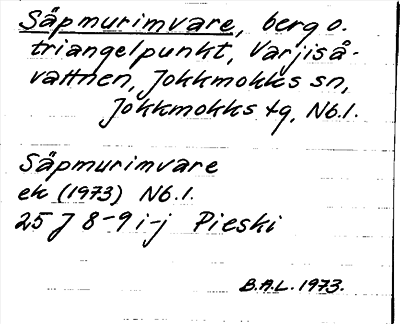 Såpmurimvare, berg o.
triangelpunkt, Varjiså-
vattnen, Jokkmokks sn,
Jokkmokks tg, Nb.l.
Såpmurimvare
ek (1973) Nb.l.
25 J 8-9 i-j Pieski
B.A.L. 1973.